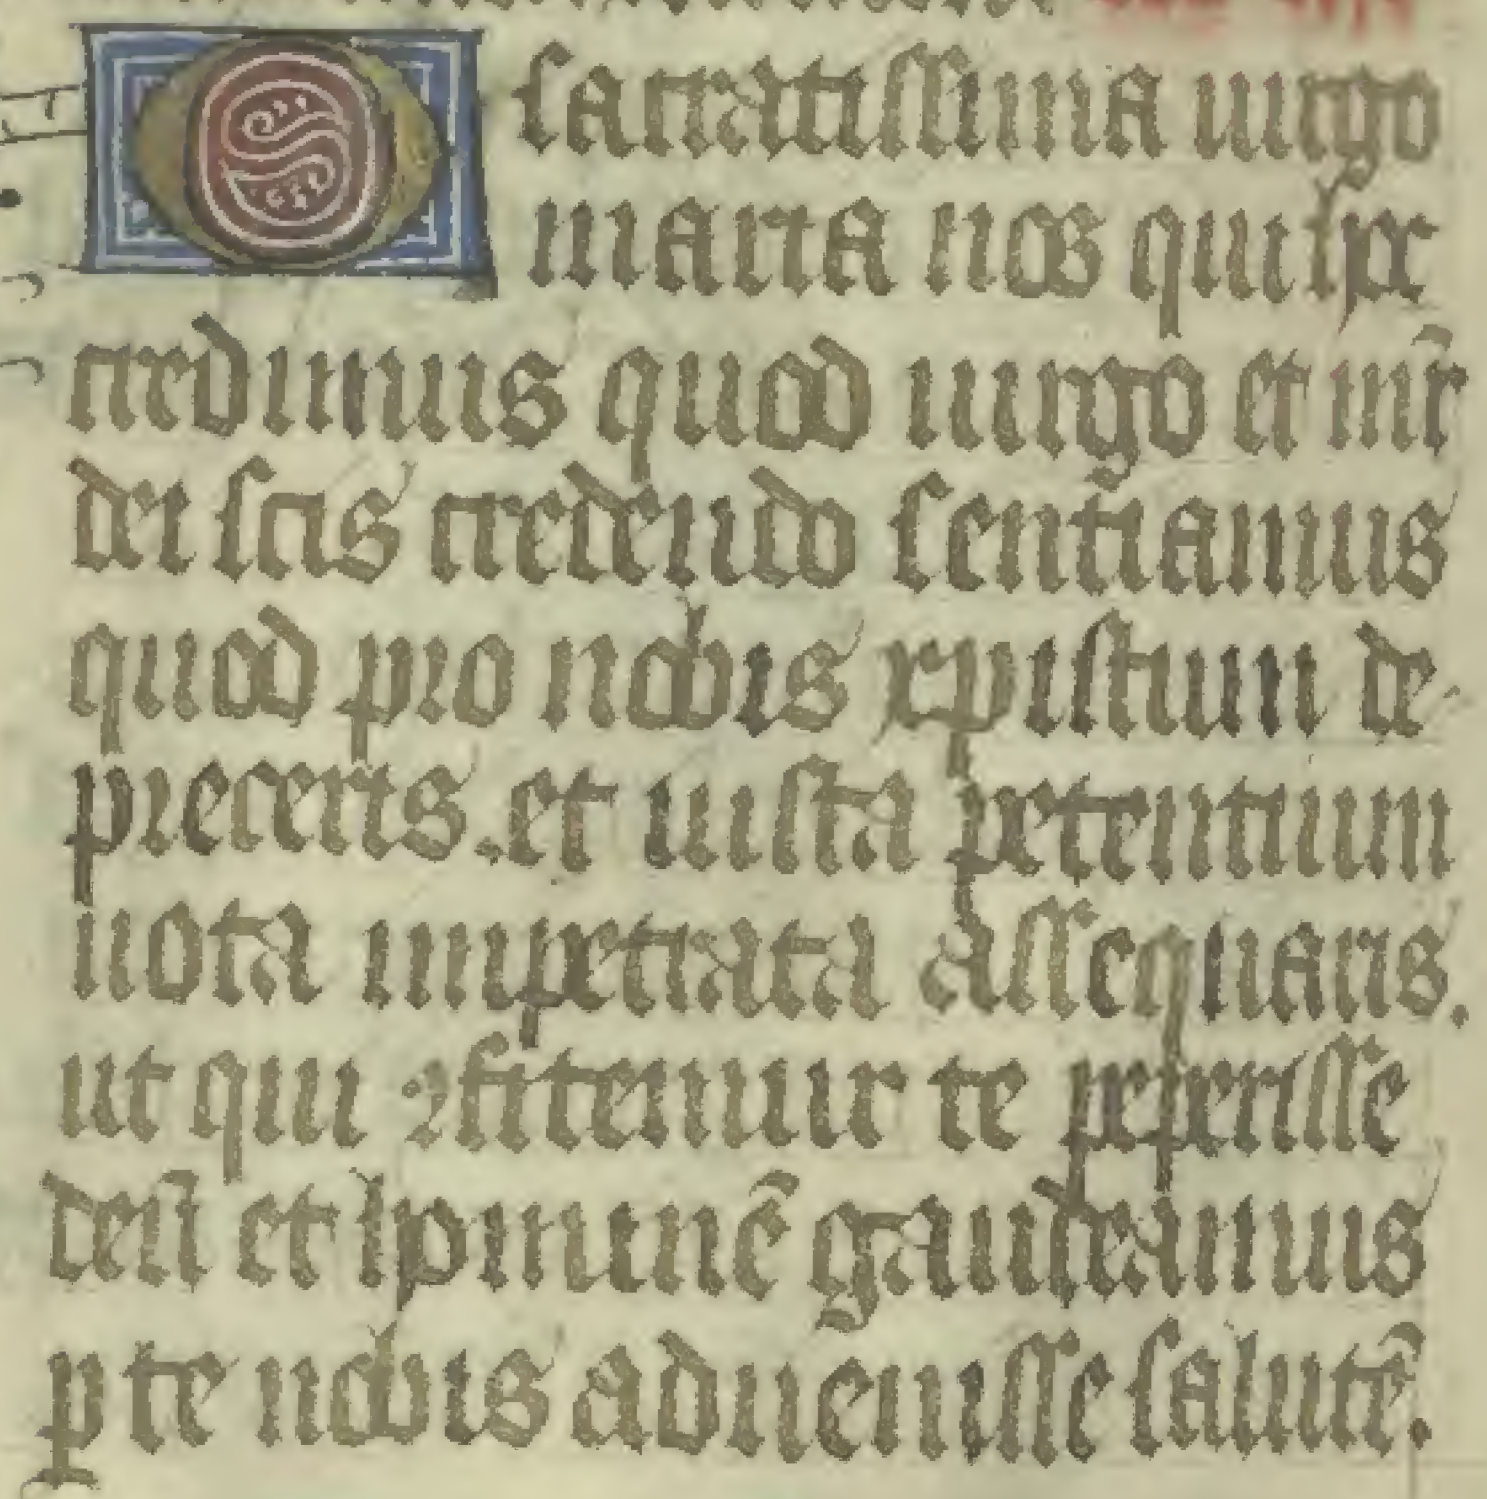 O sacratissima uirgo
maria nos qui sic
credimus quod uirgo et mr̄
dei scis credendo sentiamus
quod pro nobis xpistum de
preceris. et iusta petentium
uota impetrata assequaris.
ut qui ꝯfitemur te peperisse
deū et hominē gaudeamus
ꝑ te nobis aduenisse salutē.